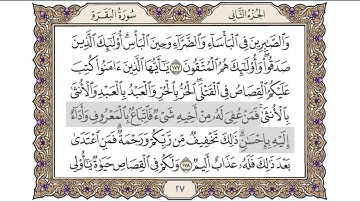 الجزء الثاني
سورة البقرة
وَالصَّٰبِرِينَ فِي الْبَأْسَآءِ وَالضَّرَّآءِ وَحِينَ الْبَأْسِ أُوْلَٰٓئِكَ الَّذِينَ
صَدَقُوا۟ وَأُوْلَٰٓئِكَ هُمُ الْمُتَّقُونَ ١٧٧ يَٰٓأَيُّهَا الَّذِينَ ءَامَنُوا۟ كُتِبَ
عَلَيْكُمُ الْقِصَاصُ فِي الْقَتْلَى الْحُرُّ بِالْحُرِّ وَالْعَبْدُ بِالْعَبْدِ وَالْأُنثَىٰ
بِالْأُنثَىٰ فَمَنْ عُفِيَ لَهُۥ مِنْ أَخِيهِ شَيْءٌ فَاتِّبَاعٌۢ بِالْمَعْرُوفِ وَأَدَآءٌ
إِلَيْهِ بِإِحْسَٰنٍ ذَٰلِكَ تَخْفِيفٌ مِّن رَّبِّكُمْ وَرَحْمَةٌ فَمَنِ اعْتَدَىٰ
بَعْدَ ذَٰلِكَ فَلَهُۥ عَذَابٌ أَلِيمٌ ١٧٨ وَلَكُمْ فِي الْقِصَاصِ حَيَوٰةٌ يَٰٓأُو۟لِي
٢٧